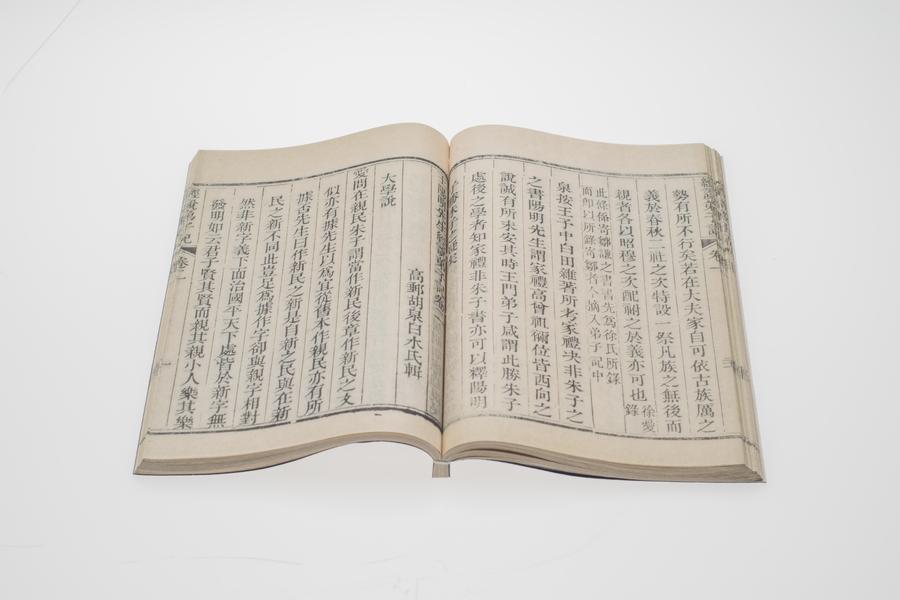 勢有所不行矣若在大夫家自可依古族厲之
義於春秋二社之次特設一祭凡族之無後而
親者各以昭穆之次配祔之於義亦可也 徐愛錄
此條係寄鄒謙之書書先為徐氏所錄
而即以所錄寄鄒者今摘入弟子記中
泉按王予中白田雜著所考家禮決非朱子之
之書陽明先生謂家禮高曾祖禰位皆西向之
說誠有所未安其時王門弟子咸謂此勝朱子
處後之學者知家禮非朱子書亦可以釋陽明
大學說
高郵胡泉白水氏輯
愛問在親民朱子謂當作新民後章作新民之文
似亦有據先生以為宜從舊本作親民亦有所
據否先生曰作新民之新是自新之民與在新
民之新不同此豈足為據作字卻與親字相對
然非新字義下面治國平天下處皆於新字無
發明如云君子賢其賢而親其親小人樂其樂
卷二